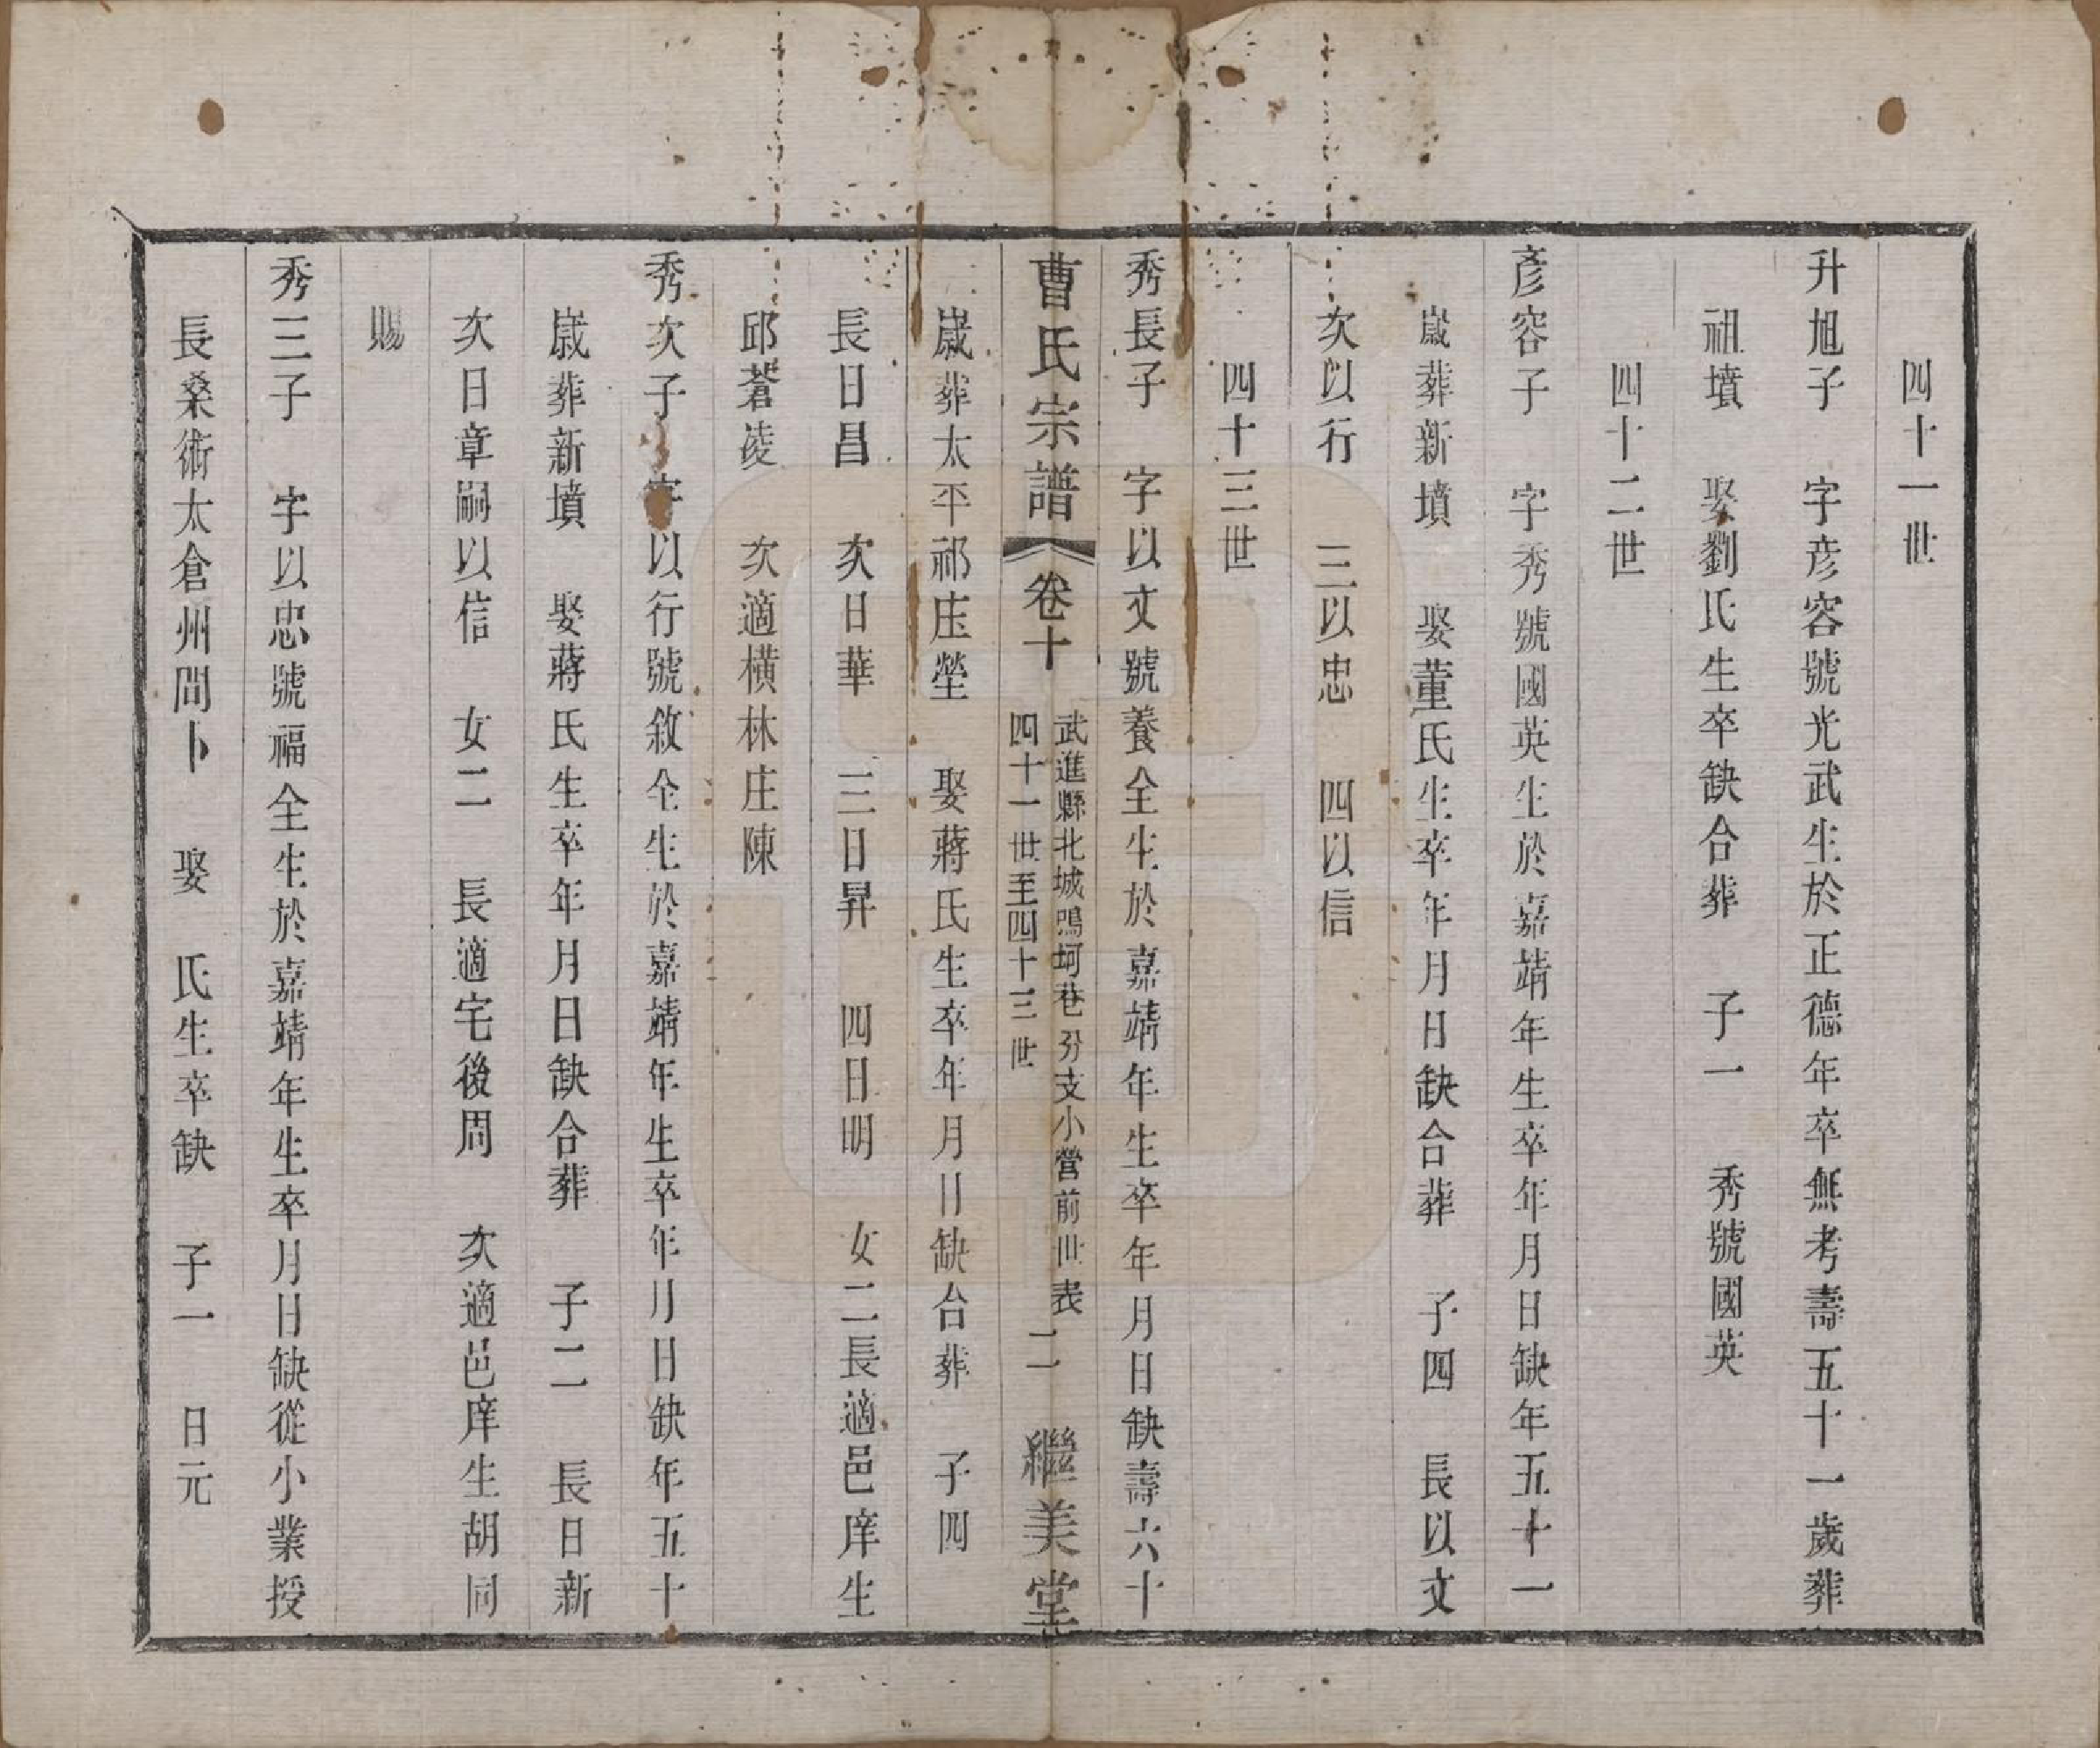 四十一世
升旭子　字彦容號光武生於正德年卒無考壽五十一歲葬
祖墳　娶劉氏生卒缺合葬　子一　秀號國英
四十二世
彥容子　字秀號國英生於嘉靖年生卒年月日缺年五十一
歲葬新墳　娶董氏生卒年月日缺合葬　子四　長以文
次以行　三以忠　四以信
四十三世
秀長子　字以文號養全生於嘉靖年生卒年月日缺壽六十
曹氏宗譜　卷十　武進縣北城鳴珂巷分支小營前世表　四十一世至四十三世　二　繼美堂
歲葬太平祁庄塋　娶蔣氏生卒年月日缺合葬　子四
長日昌　次日華　三日昇　四日明　女二長適邑庠生
邱蒼凌　次適橫林庄陳
秀次子　字以行號敘全生於嘉靖年生卒年月日缺年五十
歲葬新墳　娶蔣氏生卒年月日缺合葬　子二　長日新
次日章嗣以信　女二　長適宅後周　次適邑庠生胡同
賜
秀三子　字以忠號福全生於嘉靖年生卒月日缺從小業授
長桑術太倉州問卜　娶　氏生卒缺　子一　日元